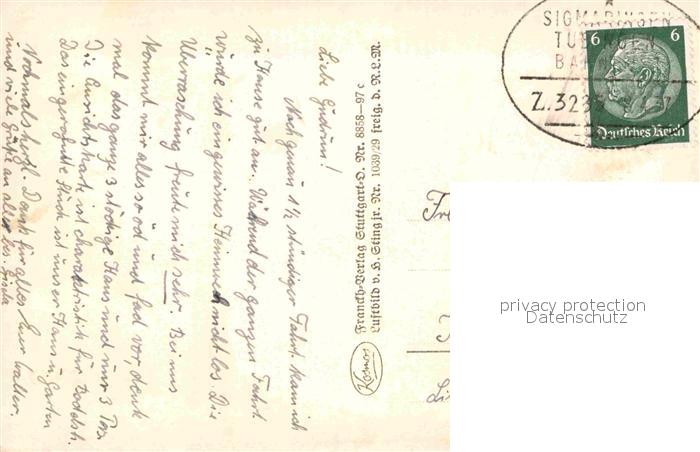 Liebe Gudrun!
Nach genau 1½ stündiger Fahrt kam ich
zu Hause gut an. Während der ganzen Fahrt
würde ich ein gewisses Heimweh nicht los. Die
Überraschung freute mich sehr. Bei uns
kommt mir alles so öd und fad vor, denk
mal das ganze 3 stöckige Haus und nur 3 Pers.
Die Ansichtskarte ist charakteristisch für
Das eingerahmte Stück ist unser Haus u. Garten
Nochmals herzl. Dank für alles Euer
und viele Grüße an alle bes. Gisela
Franckh-Verlag Stuttgart-O. Nr. 8858—97 c
Luftbild v. H. Sting jr. Nr. 1039/29 freig. d. R.L.M.
Kosmos
SIGMARINGEN
TÜBINGEN
BA
Z.323
37
6 6
Deutsches Reich
Fr
Li
privacy protection
Datenschutz